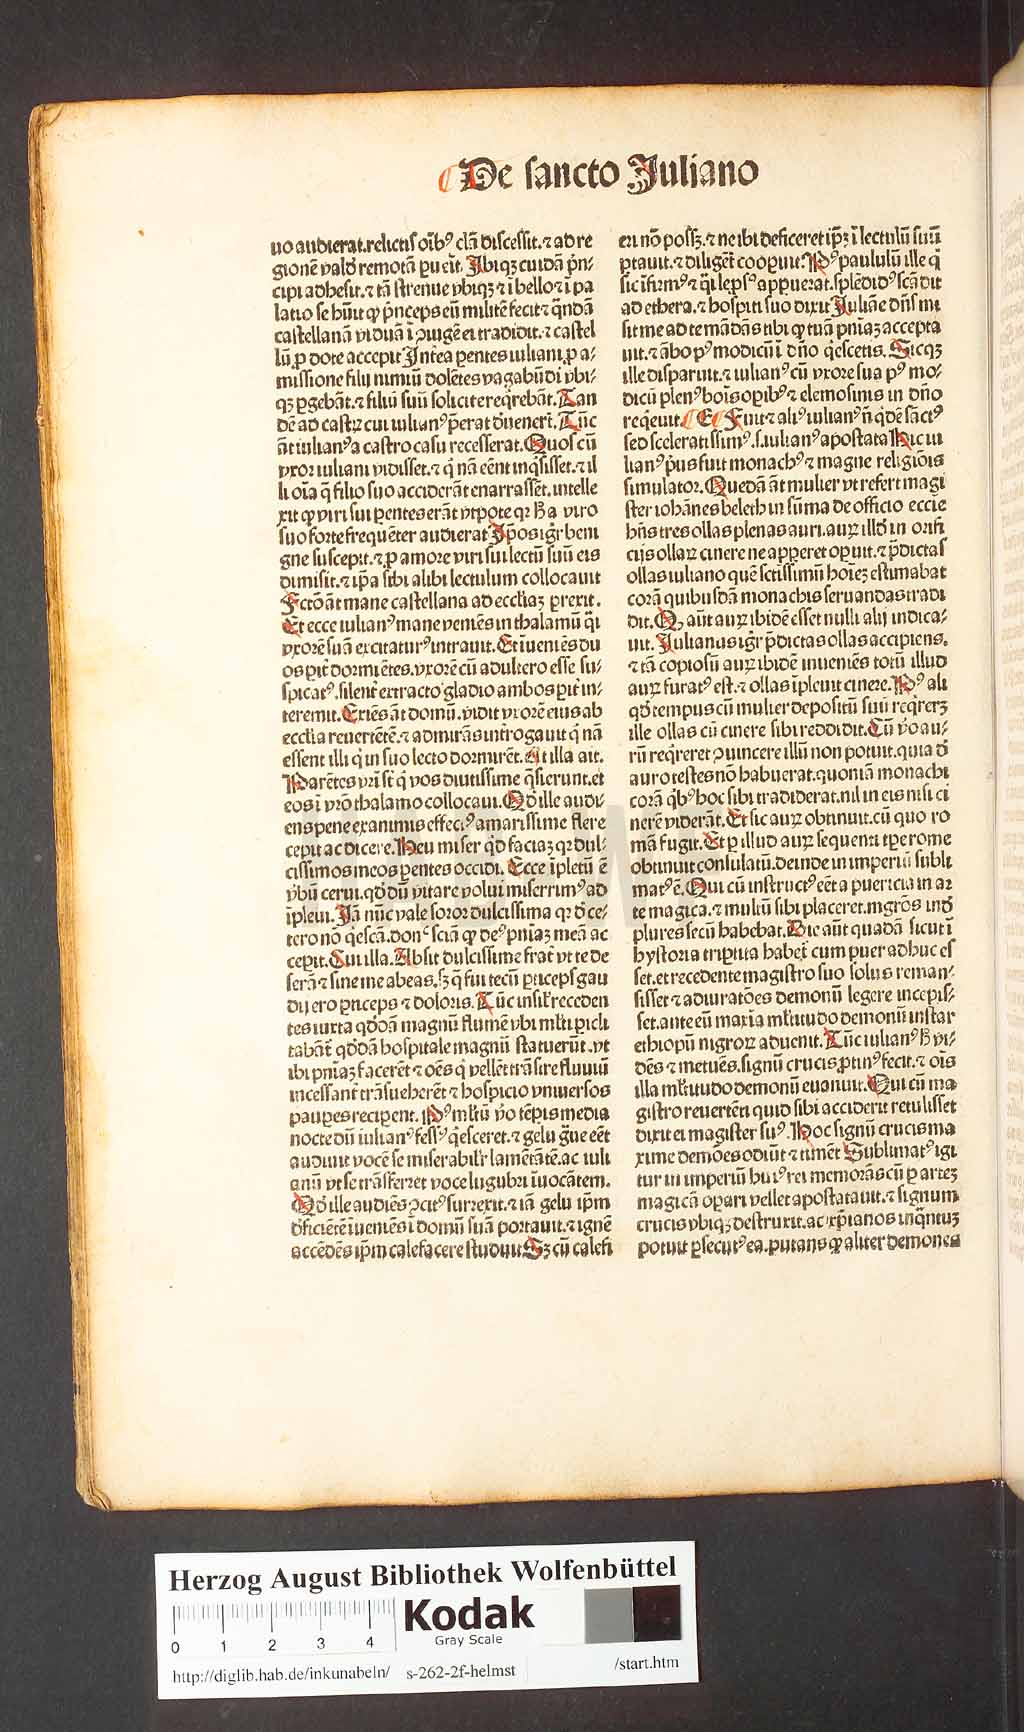 De sancto Juliano
uo audierat.relictis oĩbꝰ clã discessit.⁊ ad re
gionẽ valð remotã ꝑueĩt. Ibiqȝ cuidã p̃n-
cipi adhesit.⁊ tã strenue vbiqȝ ⁊ ĩ bello ⁊ ĩ pa
latio se hũit ꝙ p̃nceps eũ militẽ fecit ⁊ q̃ndã
castellanã viduã ĩ ꝯiugẽ ei tradidit.⁊ castel
lũ ꝓ dote accepit Int̃ea pentes iuliani ꝓ a-
missione filij nimiũ dolẽtes vagabũdi vbi-
qȝ ꝑgebãt.⁊ filiũ suũ solicite req̃rebãt. Tan
dẽ ad castrꝫ cui iulianꝰ p̃erat ðuenert̃. Tũc
ãt iulianꝰ a castro casu recesserat. Quos cũ
vxor iuliani vidisset.⁊ q̃ nã eẽnt inq̃sisset.⁊ il
li oĩa q̃ filio suo acciderãt enarrassẽt. intelle
xit ꝙ viri sui ꝑentes erãt vtpote qꝛ ħ a viro
suo forte frequẽter audierat Ipos igr̃ beni
gne suscepit.⁊ ꝓ amore viri sui lectũ suũ eis
dimisit.⁊ ip̃a sibi alibi lectulum collocauit
Fctõ ãt mane castellana ad eccliaȝ perrexit.
Et ecce iulianꝰ mane veniẽs in thalamũ q̃si
vxorẽ suã excitaturꝰ intrauit. Et ĩueniẽs du
os pit̃ dormiẽtes.vxorẽ cũ adultero esse su-
spicatꝰ.silent̃ extracto gladio ambos pit̃ in-
teremit. Exiẽs ãt domũ.vidit vxorẽ eius ab
ecclĩa reuertẽtẽ.⁊ admirãs int̃rogauit q̃ nã
essent illi q̃ in suo lecto dormirẽt. At illa ait.
Parẽtes vr̃i st̃ q̃ vos diutissime q̃sierunt.et
eos ĩ vr̃o thalamo collocaui. Qð ille audi-
ens pene exanimis effectꝰ amarissime flere
cepit ac dicere. Heu miser q̃d faciaȝ qꝛ dul-
cissimos meos ꝑentes occidi. Ecce ĩpletũ ẽ
v̾bũ cerui.qð dũ vitare volui miserrimꝰ ad
ĩpleui. Iã nũc vale soror dulcissima qꝛ ðce-
tero nõ q̃escã.donᶜ sciã ꝙ deꝰ pñiaȝ meã ac
cepit. Cui illa. Absit dulcissime frat̃ vt te de
serã ⁊ sine me abeas.sȝ q̃ fui tecũ ꝑticeps gau
dij ero ꝑticeps ⁊ doloris. Tũc insil̃ receden
tes iuxta qðdã magnũ flumẽ vbi ml̃ti ꝑicli
tabãt̃ qðdã hospitale magnũ statuerũt.vt
ibi pñiaȝ facerẽt ⁊ oẽs q̃ vellẽt trãsire fluuiũ
incessant̃ trãsueherẽt ⁊ hospicio vniuersos
pauꝑes reciꝑent. Pꝰ ml̃tũ ṽo tẽpis media
nocte dũ iulianꝰ fessꝰ q̃esceret.⁊ gelu g̃ue eẽt
audiuit vocẽ se miserabilr̃ lamẽtãtẽ.ac iuli
anũ vt se trãsferret voce lugubri ĩuocãtem.
Qð ille audiẽs ꝯcitꝰ surrexit.⁊ iã gelu ip̃m
ðficiẽtẽ ĩueniẽs ĩ domũ suã portauit.⁊ ignẽ
accẽdẽs ip̃m calefacere studuit. Sȝ cũ calefi
eri nõ possȝ.⁊ ne ibi deficeret ip̃ȝ ĩ lectulũ suũ
ꝑtauit.⁊ diligẽt̃ cooꝑuit. Pꝰ paululũ ille q̃
sic ĩfirmꝰ ⁊ q̃si lepsꝰ apparuerat.splẽdidꝰ scãdit
ad ethera.⁊ hospiti suo dixit Iuliãe dñs mi
sit me ad te mãdãs tibi ꝙ tuã pñiaȝ accepta
uit.⁊ ãbo pꝰ modicũ ĩ dño q̃escetis. Sicqȝ
ille disparuit.⁊ iulianꝰ cũ vxore sua pꝰ mo-
dicũ plenꝰ boĩs opibꝰ ⁊ elemosinis in dño
req̃euit. E Fuit ⁊ aliꝰ iulianꝰ ñ q̃dẽ sanctꝰ
sed sceleratissimꝰ.s.iulianꝰ apostata Hic iu
lianꝰ pͥus fuit monachꝰ ⁊ magne religiõis
simulator. Quedã ãt mulier vt refert magi
ster iohãnes beleth in sũma de officio eccie
hñs tres ollas plenas auri.aurꝫ illð in orifi
cijs ollarꝫ cinere ne appeteret oꝑuit.⁊ p̃dictas
ollas iuliano quẽ sctissimũ hoĩeȝ estimabat
corã quibusdã monachis seruandas tradi
dit. Qȝ aũt aurꝫ ibidẽ esset nulli alij indica-
uit. Iulianus igr̃ p̃dictas ollas accipiens.
⁊ tã copiosũ aurꝫ ibidẽ inueniẽs totũ illud
aurꝫ furatꝰ est.⁊ ollas ĩpleuit cinere. Pꝰ ali
qð tempus cũ mulier depositũ suũ req̃rerȝ
ille ollas cũ cinere sibi reddidit. Cũ ṽo au-
rũ req̃reret ꝯuincere illũ non potuit.quia ð
auro testes nõ habuerat.quoniã monachi
corã q̃bꝰ hoc sibi tradiderat.nil in eis nisi ci
nerẽ viderãt. Et sic aurꝫ obtinuit.cũ quo ro
mã fugit. Et ꝑ illud aurꝫ sequenti tꝑe rome
obtinuit consulatũ.deinde in imperiũ subli
matꝰ ẽ. Qui cũ instructꝰ eẽt a puericia in ar
te magica.⁊ multũ sibi placeret.mgr̃os inð
plures secũ habebat. Die aũt quadã sicut ĩ
hystoria tripĩtita habet̃ cum puer adhuc es
set.et recedente magistro suo solus reman-
sisset ⁊ adiuratões demonũ legere incepis-
set.ante eũ maxĩa ml̃titudo demonũ instar
ethiopũ nigrorꝫ aduenit. Tũc iulianꝰ ħ vi-
dẽs ⁊ metuẽs.signũ crucis ꝓtinꝰ fecit.⁊ oĩs
illa ml̃titudo demonũ euanuit. Qui cũ ma
gistro reuertẽti quid sibi acciderit retulisset
dixit ei magister suꝰ. Hoc signũ crucis ma
xime demões odiũt ⁊ timẽt Sublimatꝰ igi
tur in imperiũ huiꝰ rei memorãs cũ ꝑ arteȝ
magicã oꝑari vellet apostatauit.⁊ signum
crucis vbiqȝ destruxit.ac xp̃ianos inq̃ntuȝ
potuit ꝑsecutꝰ ẽ a.putans ꝙ aliter demones
Herzog August Bibliothek Wolfenbüttel
0 1 2 3 4
Kodak
Gray Scale
http://diglib.hab.de/inkunabeln/ s-262-2f-helmst /start.htm